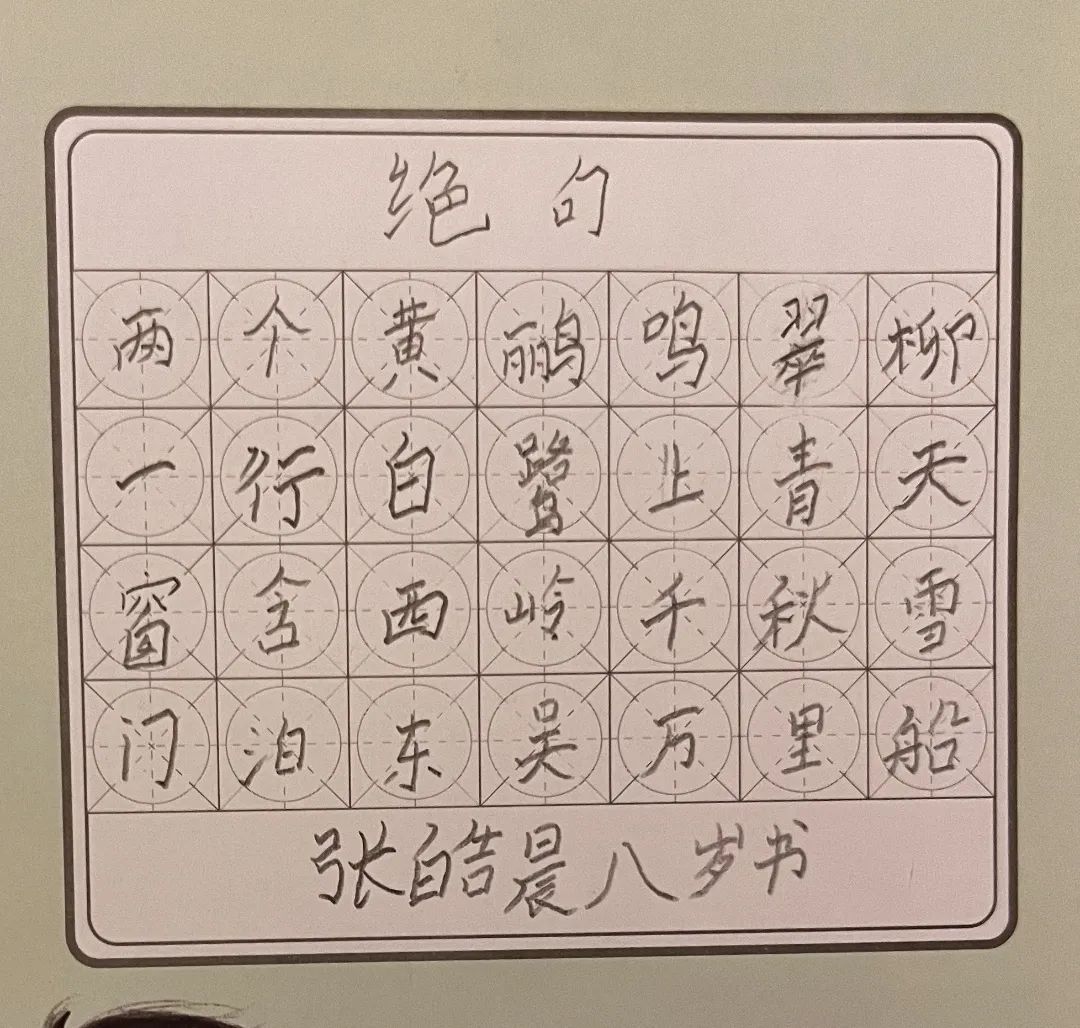 绝句
两个黄鹂鸣翠柳
一行白鹭上青天
窗含西岭千秋雪
门泊东吴万里船
张皓晨八岁书